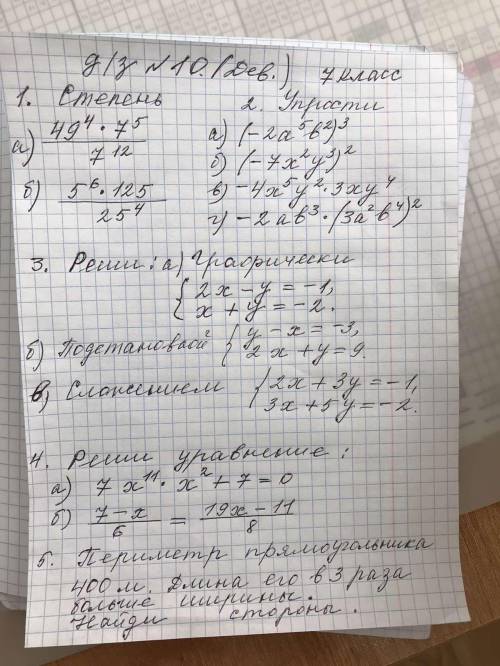 Д/з №10. (Дев.) 7 класс
1. Степень
а) 49⁴ · 7⁵ / 7¹²
б) 5⁶ · 125 / 25⁴
2. Упрости
а) (-2a⁵b²)³
б) (-7x²y³)²
в) -4x⁵y² · 3xy⁴
г) -2ab³ · (3a²b⁴)²
3. Реши: а) Графически
{ 2x - y = -1,
x + y = -2.
б) Подстановкой { y - x = -3,
2x + y = 9.
в) Сложением { 2x + 3y = -1,
3x + 5y = -2.
4. Реши уравнение:
а) 7x¹¹ · x² + 7 = 0
б) 7-x / 6 = 19x-11 / 8
5. Периметр прямоугольника
400 м. Длина его в 3 раза
больше ширины.
Найди стороны.